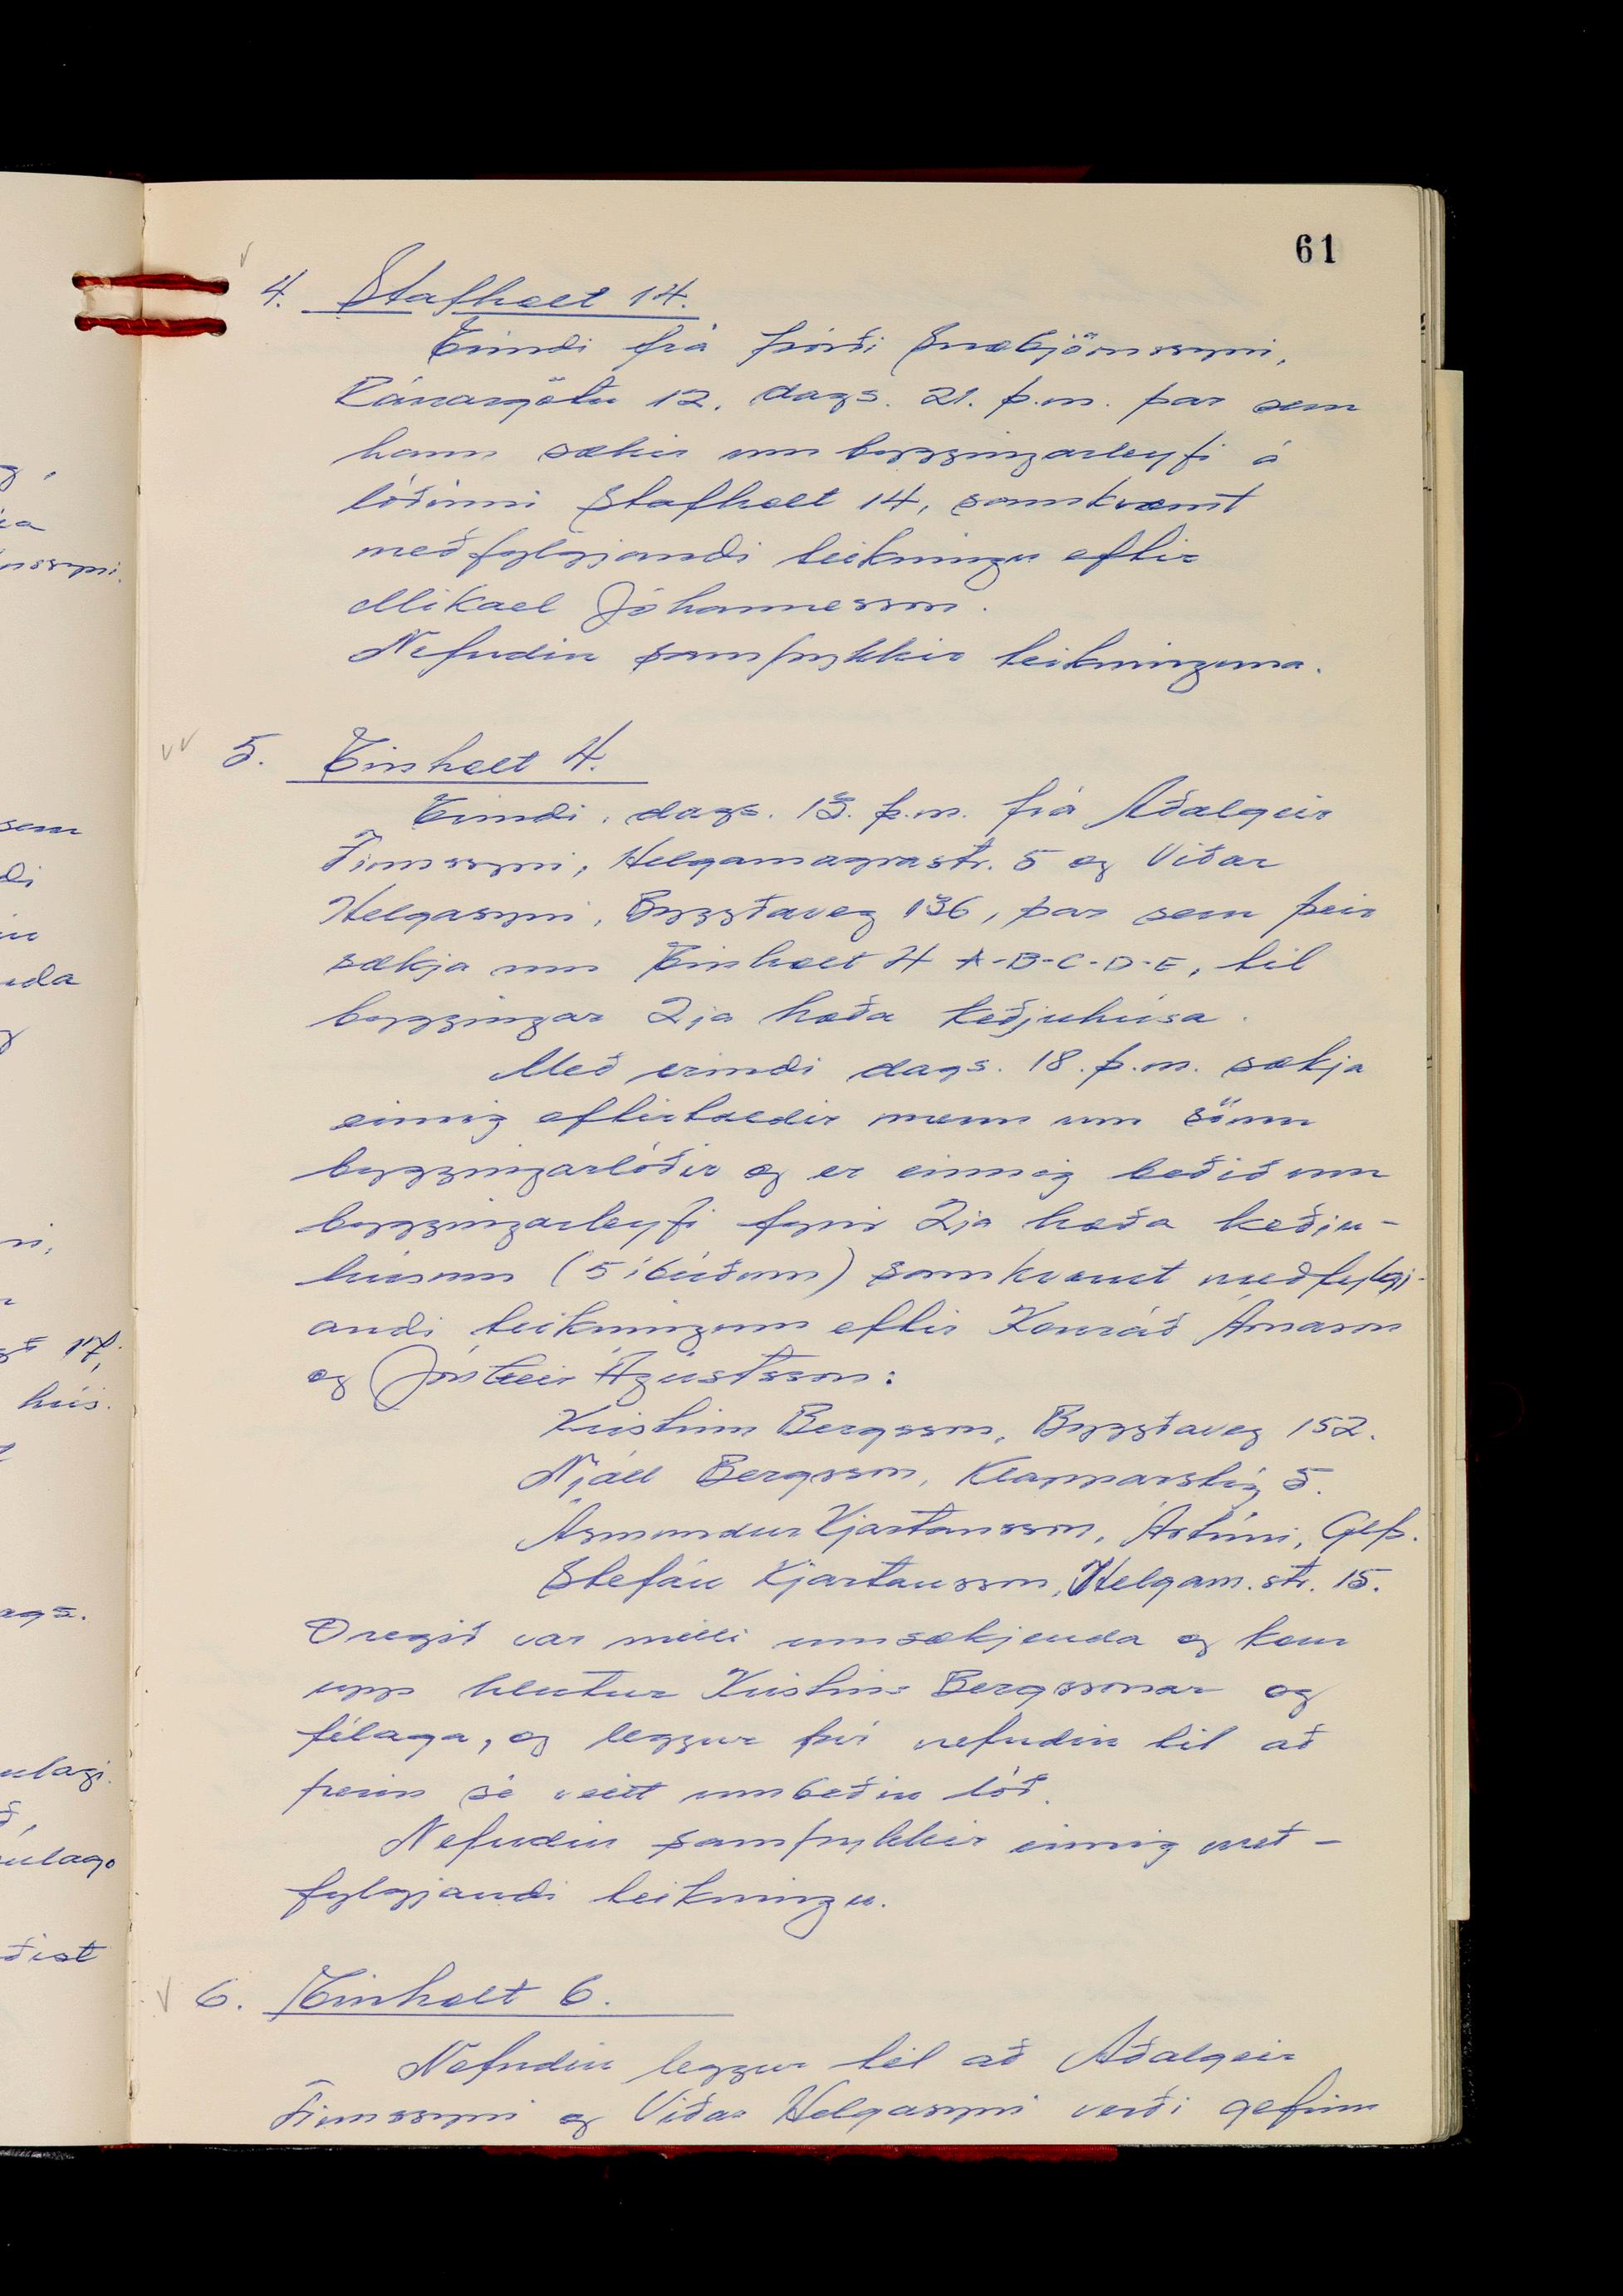 61
4. Stafholt 14.
Erindi frá Þórði Snæbjörnssyni,
Ránargötu 12, dags. 21. þ.m. þar sem
hann sækir um byggingarleyfi á
lóðinni Stafholt 14, samkvæmt
meðfylgjandi teikningu eftir
Mikael Jóhannesson.
Nefndin samþykkir teikninguna.
5. Einholt 4.
Erindi, dags. 13. þ.m. frá Aðalgeir
Finnssyni, Helgamagrastr. 5 og Viðar
Helgasyni, Byggðaveg 136, þar sem þeir
sækja um Einholt 4 A-B-C-D-E, til
byggingar 2ja hæða keðjuhúsa.
Með erindi dags. 18. þ.m. sækja
einnig eftirtaldir menn um sömu
byggingarlóðir og er einnig beðið um
byggingarleyfi fyrir 2ja hæða keðju-
húsum (5 íbúðum) samkvæmt meðfylgj-
andi teikningum eftir Konráð Árnason
og Jón Geir Ágústsson:
Kristinn Bergsson, Byggðaveg 152.
Njáll Bergsson, Klapparstíg 5.
Ásmundur Kjartansson, Ártúni, Glþ.
Stefán Kjartansson, Helgam.str. 15.
Dregið var milli umsækjenda og kom
upp hlutur Kristins Bergssonar og
félaga, og leggur því nefndin til að
þeim sé veitt umbeðin lóð.
Nefndin samþykkir einnig með-
fylgjandi teikningu.
6. Einholt 6.
Nefndin leggur til að Aðalgeir
Finnssyni og Viðar Helgasyni verði gefinn